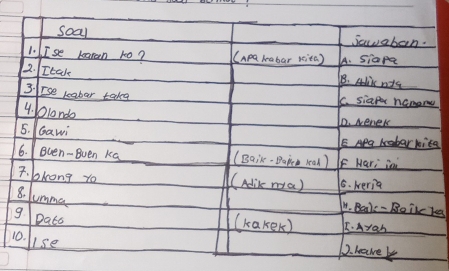 Soal
jawaban.
1. Ise karan ko?
(Apa kabar kita)
A. Siapa
2. Itak
B. Adik nya
3. Ise kabar taka
C. Siapa
4. Olondo
D. Nenek
5. Gawi
E Apa kabar kita
6. Buen-Buen ka
(Baik-Baik kah)
F Hari ini
7. Okang yo
(Adik nya)
G. Kerja
8. umma
H. Baik-Baik
9. Dato
(kakek)
I. Ayah
10. Ise
J. Kakek